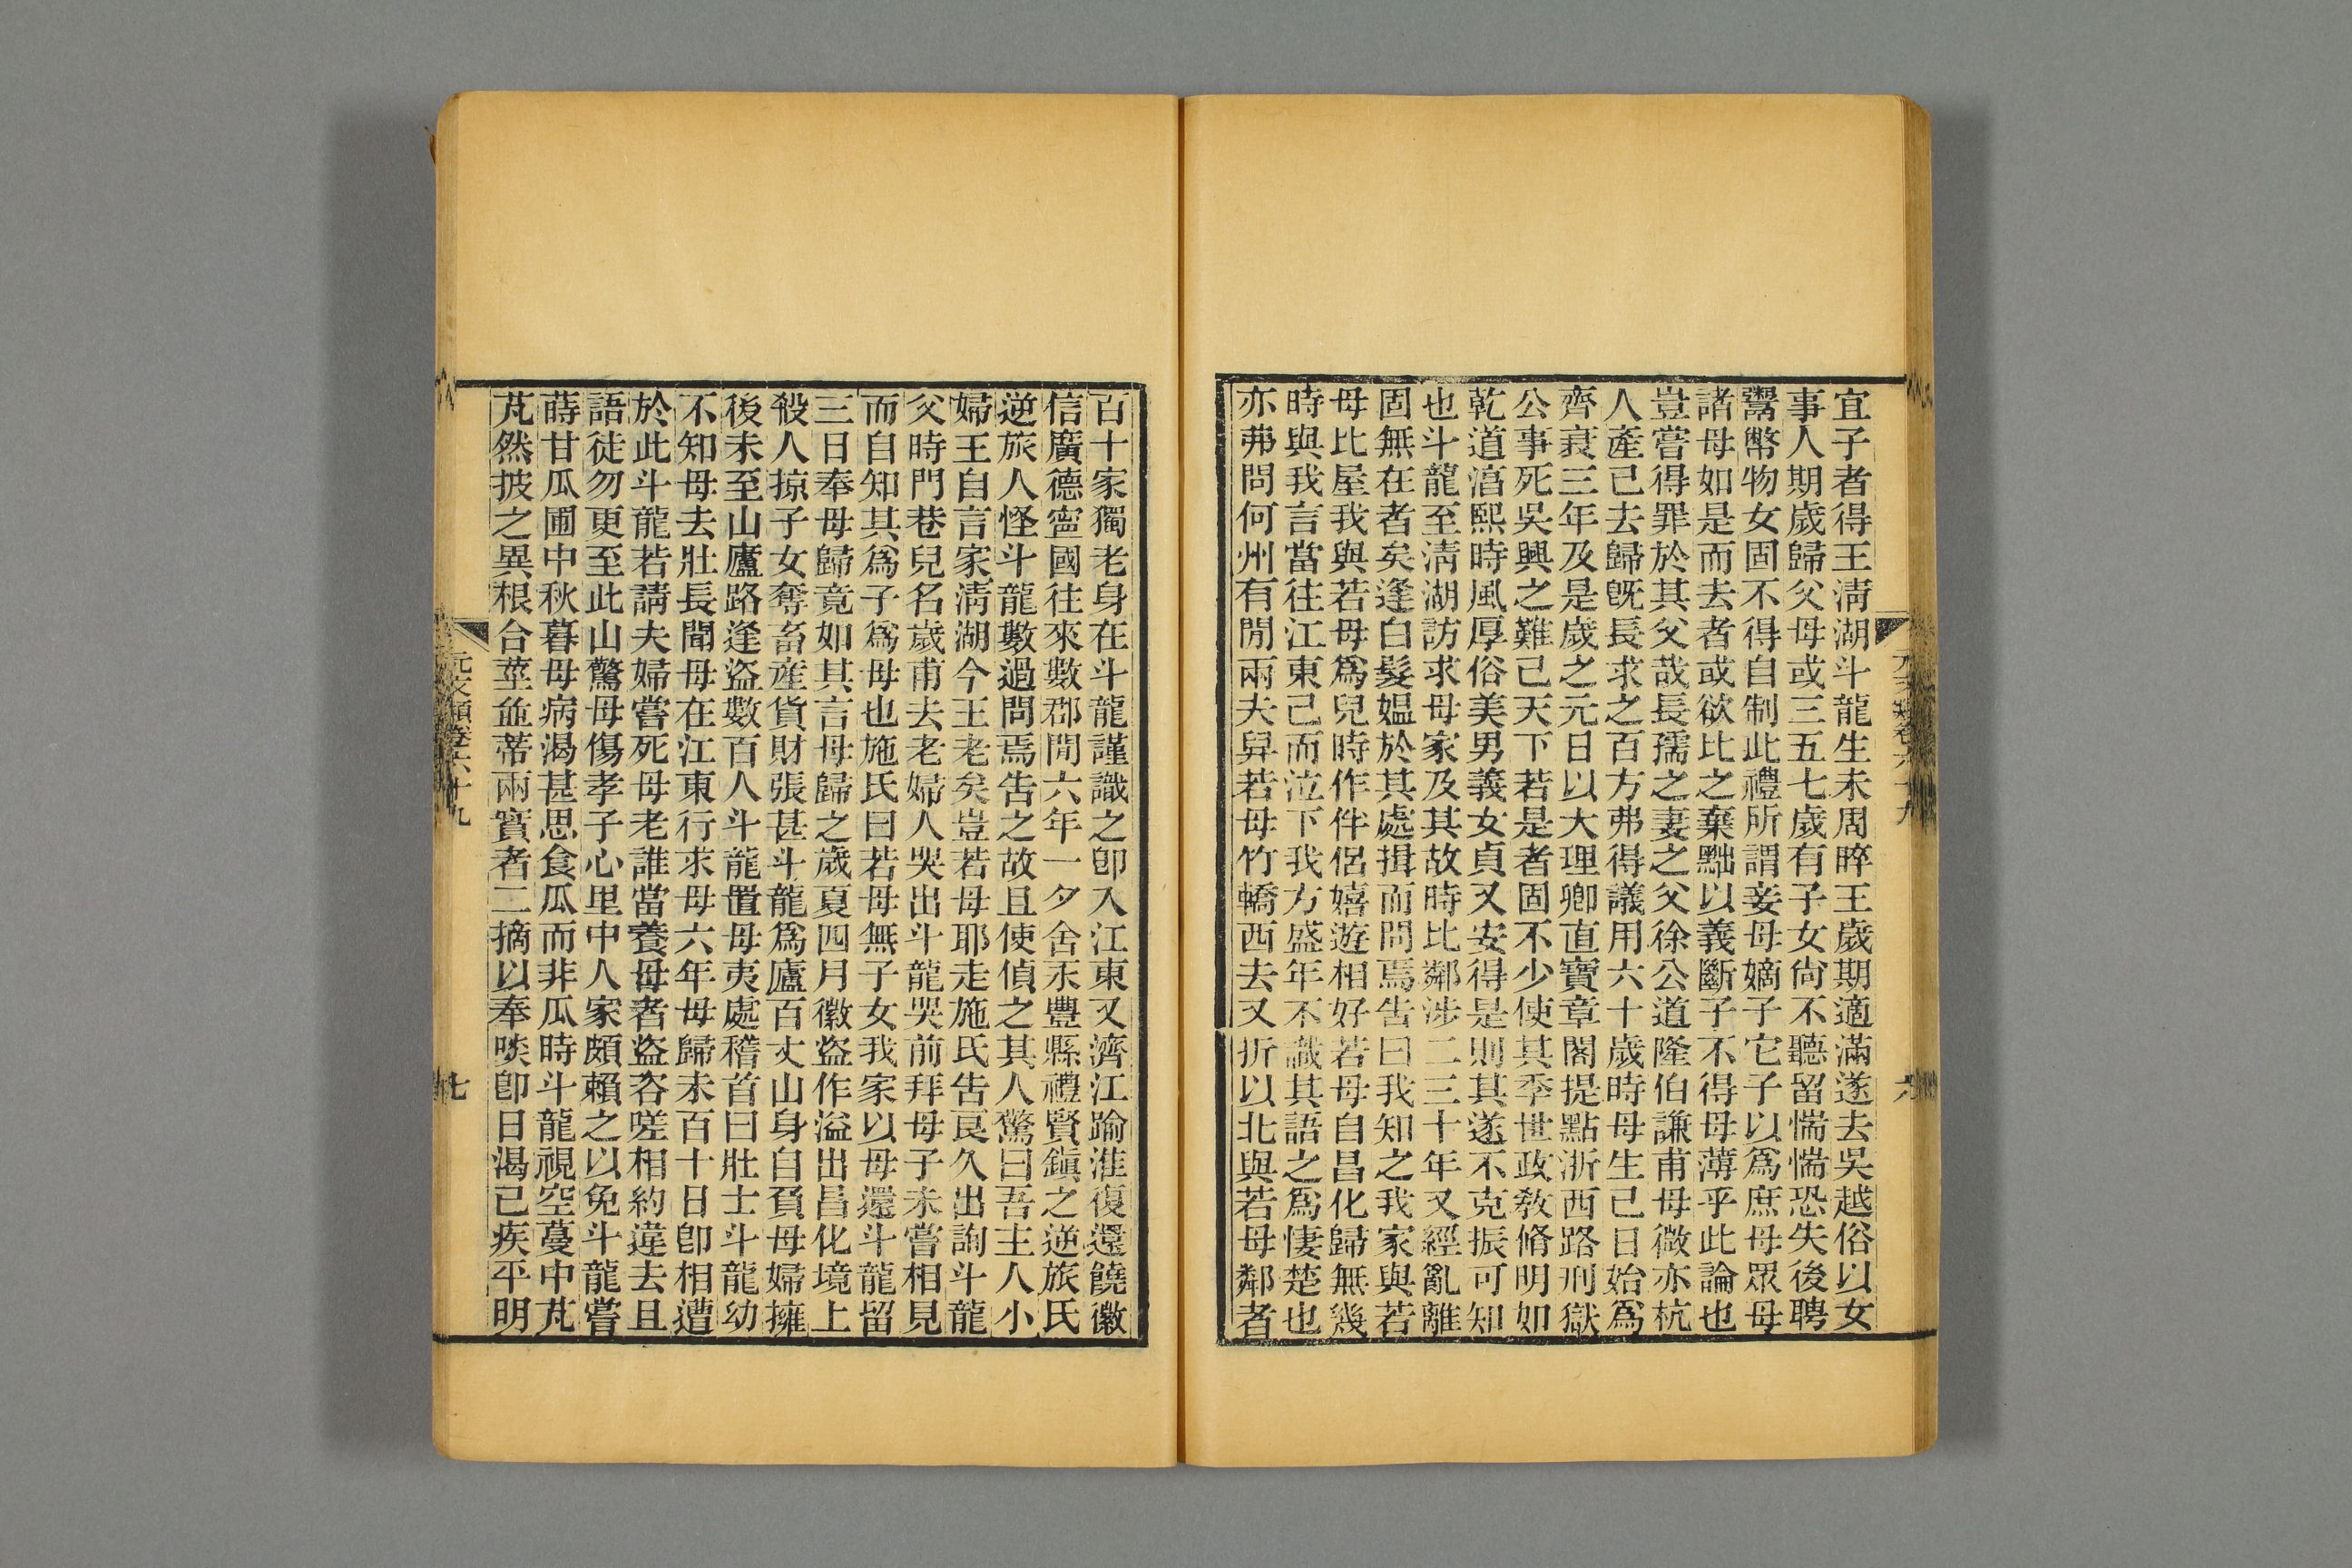 宜子者得王淸湖斗龍生未周晬王歲期適滿遂去吳越俗以女
事人期歲歸父母或三五七歲有子女尙不聽留惴惴恐失後聘
鬻幣物女固不得自制此禮所謂妾母嫡子它子以爲庶母眾母
諸母如是而去者或欲比之棄黜以義斷子不得母薄乎此論也
豈嘗得罪於其父哉長孺之妻之父徐公道隆伯謙甫母微亦杭
人產已去歸旣長求之百方弗得議用六十歲時母生已日始爲
齊衰三年及是歲之元日以大理卿直寶章閣提點浙西路刑獄
公事死吳興之難已天下若是者固不少使其季世政敎脩明如
乾道湻熙時風厚俗美男義女貞又安得是則其遂不克振可知
也斗龍至淸湖訪求母家及其故時比鄰涉二三十年又經亂離
固無在者矣逢白髮媼於其處揖而問焉吿曰我知之我家與若
母比屋我與若母爲兒時作伴侶嬉遊相好若母自昌化歸無幾
時與我言當往江東已而泣下我方盛年不識其語之爲悽楚也
亦弗問何州有閒兩夫舁若母竹轎西去又折以北與若母鄰者
百十家獨老身在斗龍謹識之卽入江東又濟江踰淮復還饒徽
信廣德寍國往來數郡閒六年一夕舍永豐縣禮賢鎭之逆旅氏
逆旅人怪斗龍數過問焉吿之故且使偵之其人驚曰吾主人小
婦王自言家淸湖今王老矣豈若母耶走施氏吿良久出詢斗龍
父時門巷兒名歲甫去老婦人哭出斗龍哭前拜母子未嘗相見
而自知其爲子爲母也施氏曰若母無子女我家以母還斗龍留
三日奉母歸竟如其言母歸之歲夏四月徽盜作溢出昌化境上
殺人掠子女奪畜産貨財張甚斗龍爲廬百丈山身自負母婦擁
後未至山廬路逢盜數百人斗龍置母夷處稽首曰壯士斗龍幼
不知母去壯長聞母在江東行求母六年母歸未百十日卽相遭
於此斗龍若請夫婦嘗死母老誰當養母者盜咨嗟相約違去且
語徒勿更至此山驚母傷孝子心里中人家頗賴之以免斗龍嘗
蒔甘瓜圃中秋暮母病渴甚思食瓜而非瓜時斗龍視空蔓中芃
芃然披之異根合莖並蒂兩實者二摘以奉啖卽日渴已疾平明
元文類卷六十九
七